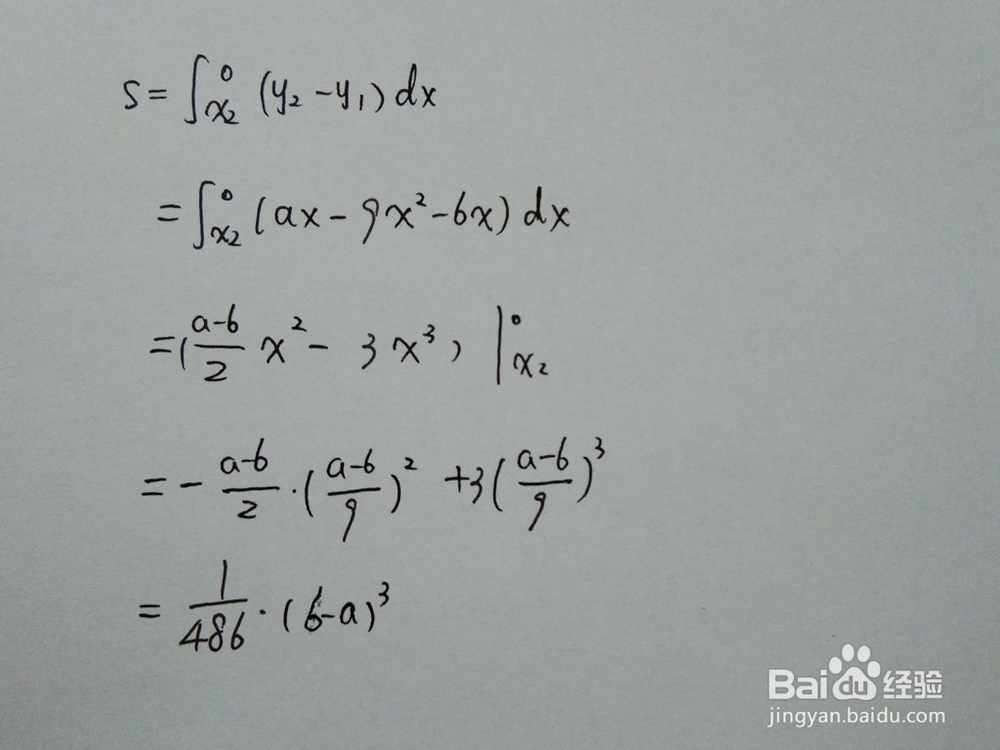 S = ∫_{x₂}^{0} (y₂ - y₁) dx
= ∫_{x₂}^{0} (ax - 9x² - 6x) dx
= (\frac{a-6}{2} x² - 3x³) |_{x₂}^{0}
= - \frac{a-6}{2} · (\frac{a-6}{9})² + 3(\frac{a-6}{9})³
= \frac{1}{486} · (6-a)³
Baidu 经验
jingyan.baidu.com